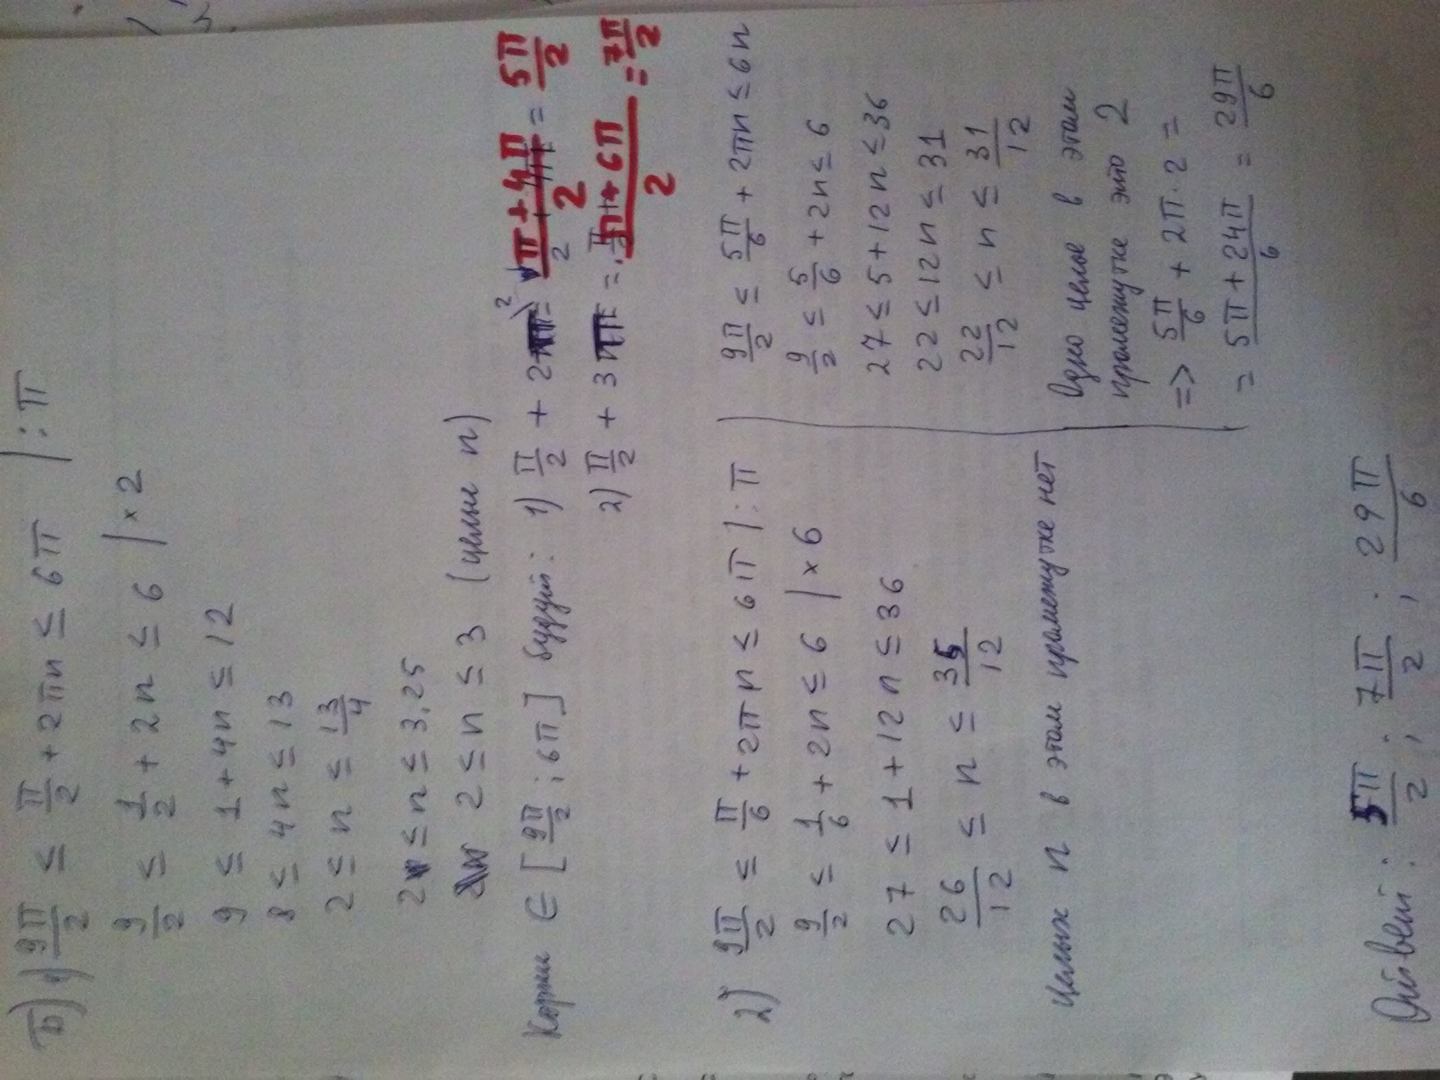 б) 1) 9π/2 ≤ π/2 + 2πn ≤ 6π | : π
9/2 ≤ 1/2 + 2n ≤ 6 | × 2
9 ≤ 1 + 4n ≤ 12
8 ≤ 4n ≤ 13
2 ≤ n ≤ 13/4
2 ≤ n ≤ 3,25
2 ≤ n ≤ 3 (целые n)
Корни ∈ [9π/2 ; 6π] будут: 1) π/2 + 2π = (π + 4π)/2 = 5π/2
2) π/2 + 3π = (π + 6π)/2 = 7π/2
2) 9π/2 ≤ π/6 + 2πn ≤ 6π | : π
9/2 ≤ 1/6 + 2n ≤ 6 | × 6
27 ≤ 1 + 12n ≤ 36
26/12 ≤ n ≤ 35/12
Целых n в этом промежутке нет
9π/2 ≤ 5π/6 + 2πn ≤ 6π
9/2 ≤ 5/6 + 2n ≤ 6
27 ≤ 5 + 12n ≤ 36
22 ≤ 12n ≤ 31
22/12 ≤ n ≤ 31/12
Одно целое в этом
промежутке это 2
=> 5π/6 + 2π · 2 =
= (5π + 24π)/6 = 29π/6
Ответ: 5π/2 ; 7π/2 ; 29π/6